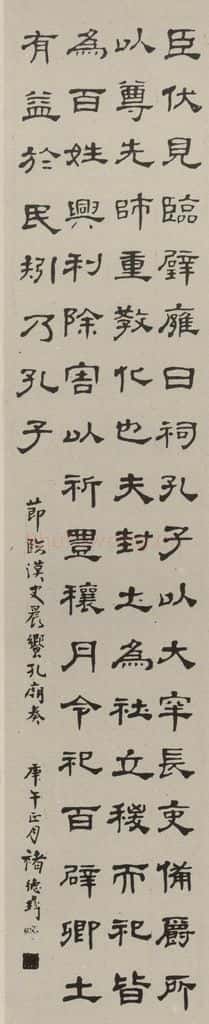 臣伏見臨璧雍日祠孔子以大宰長吏備爵所
以尊先師重教化也夫封土為社立稷而祀皆
為百姓興利除害以祈豊穰月令祀百辟卿土
有益於民矧乃孔子
節臨漢史晨饗孔廟奏
庚午正月褚德彝